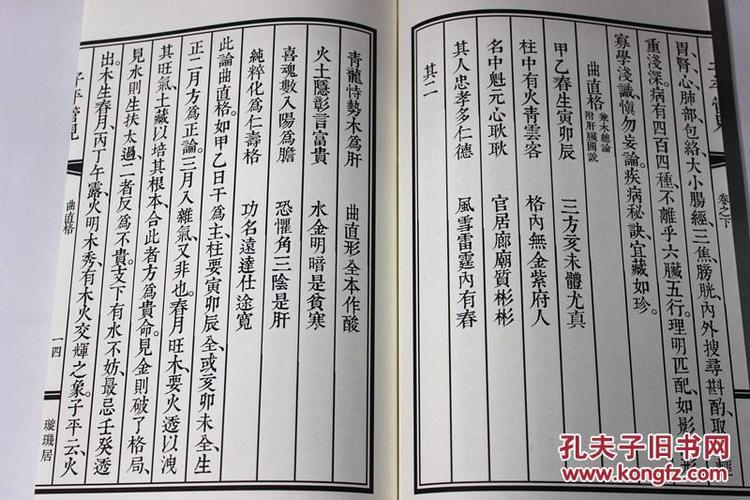 子平管見
卷之下
胃、腎、心、肺、部、包絡、大小腸經、三焦、膀胱、內外搜尋斟酌、取
重淺深。病有四百四種、不離乎六臟五行。理明匹配、如影
寡學淺識、愼勿妄論。疾病秘訣、宜藏如珍。
曲直格 兼木總論 附肝臟圖說
甲乙春生寅卯辰 三方亥未體尤真
柱中有火靑雲客 格內無金紫府人
名中魁元心耿耿 官居廊廟質彬彬
其人忠孝多仁德 風雪雷霆內有春
其二
靑龍恃勢木爲肝 曲直形全本作酸
火土隱彰言富貴 水金明暗是貧寒
喜魂數入陽爲膽 恐懼角三陰是肝
純粹化爲仁壽格 功名遠達仕途寬
此論曲直格。如甲乙日干爲主、柱要寅卯辰全、或亥卯未全、生
正二月方爲正論。三月入雜氣、又非也。春月旺木、要火透以洩
其旺氣、土藏以培其根本、合此者方爲貴命。見金則破了格局、
見水則生扶太過、二者反爲不貴。支下有水不妨、最忌壬癸透
出。木生春月、丙丁午露、火明木秀、有木火交輝之象。子平云、火
子平管見
曲直格
一四
璇璣居
孔夫子旧书网
www.kongfz.com